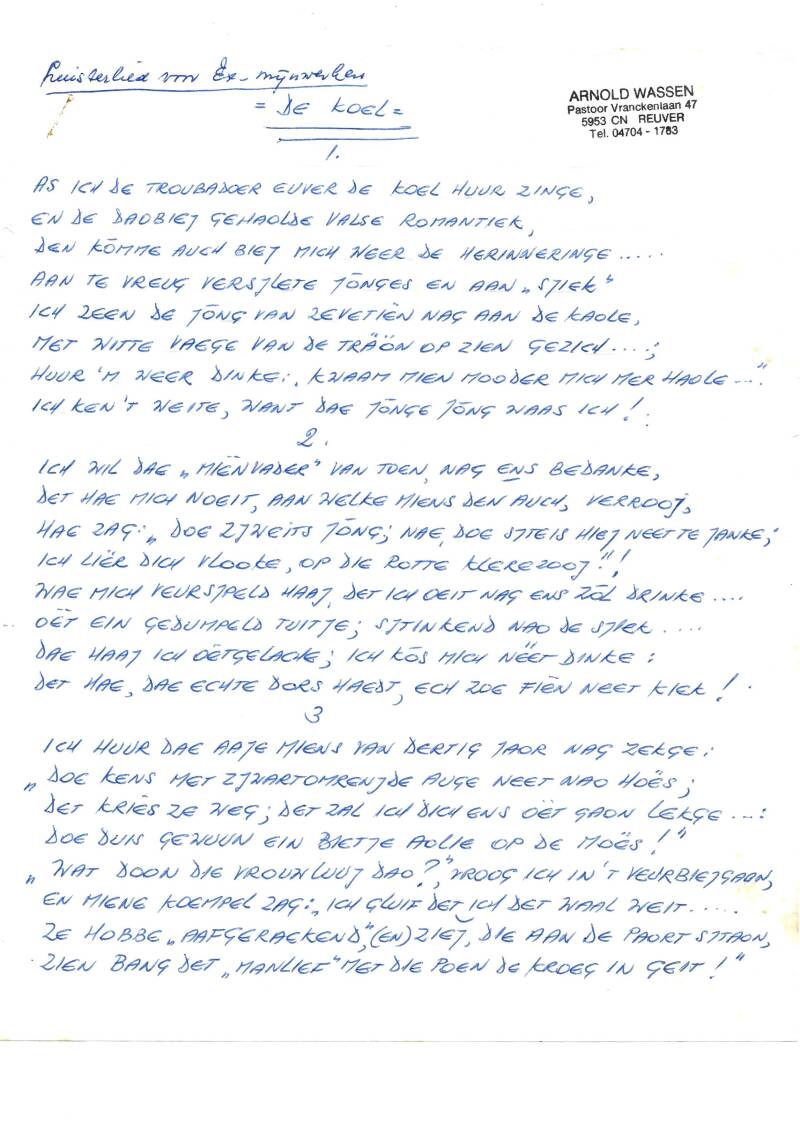 Luisterlied voor Ex-mijnwerkers
ARNOLD WASSEN
Pastoor Vranckenlaan 47
5953 CN REUVER
Tel. 04704 - 1783
= DE KOEL =
1.
AS ICH DE TROUBADOER EUVER DE KOEL HUUR ZINGE,
EN DE DAOBIEJ GEHAOLDE VALSE ROMANTIEK,
DEN KÖMME AUCH BIEJ MICH WEER DE HERINNERINGE.....
AAN TE VREUG VERSJLETE JÓNGES EN AAN „SJIEK"
ICH ZEEN DE JÓNG VAN ZEVETIËN NAG AAN DE KAOLE,
MET WITTE VAEGE VAN DE TRÄÖN OP ZIEN GEZICH....;
HUUR 'M WEER DINKE: „KWAAM MIEN MOODER MICH MER HAOLE...."
ICH KEN 'T WEITE, WANT DAE JÓNGE JÓNG WAAS ICH!.
2.
ICH WIL DAE „MIËNVADER" VAN TOEN, NAG ENS BEDANKE,
DET HAE MICH NOEIT, AAN WELKE MIENS DEN AUCH, VERROOJ,
HAE ZAG: „DOE ZJWEITS JÓNG; NAE, DOE SJTEIS HIEJ NEET TE JANKE;
ICH LIËR DICH VLOOKE, OP DIE ROTTE KLEREZOOJ!"!
WAE MICH VEURSJPELD HAAJ, DET ICH OEIT NAG ENS ZÓL DRINKE....
OËT EIN GEDUMPELD TUITJE; SJTINKEND NAO DE SJIEK....
DAE HAAJ ICH OËTGELACHE; ICH KÓS MICH NËET DINKE:
DET HAE, DAE ECHTE DORS HAEDT, ECH ZOE FIËN NEET KIEK!.
3
ICH HUUR DAE AAJE MIENS VAN DERTIG JAOR NAG ZEKGE:
„DOE KENS MET ZJWARTOMRENJDE AUGE NEET NAO HOËS;
DET KRIËS ZE WEG; DET ZAL ICH DICH ENS OËT GAON LEKGE...:
DOE DUIS GEWUUN EIN BIETJE AOLIE OP DE MOËS!"
„WAT DOON DIE VROUWLUUJ DAO?", VROOG ICH IN 'T VEURBIEJGAON,
EN MIENE KOEMPEL ZAG: „ICH GLUIF DET ICH DET WAAL WEIT.....
ZE HOBBE „AAFGERAEKEND", (EN) ZIEJ, DIE AAN DE PAORT SJTAON,
ZIEN BANG DET „MANLIEF" MET DIE POEN DE KROEG IN GEIT!"